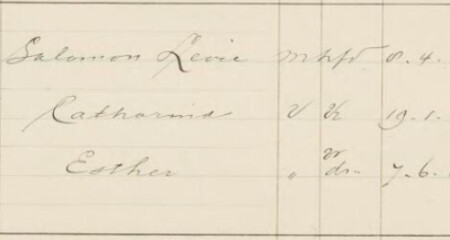 Salomon Levie m hfd 8.4.
Catharina v vr 19.1.
Esther " dr. 7.6.